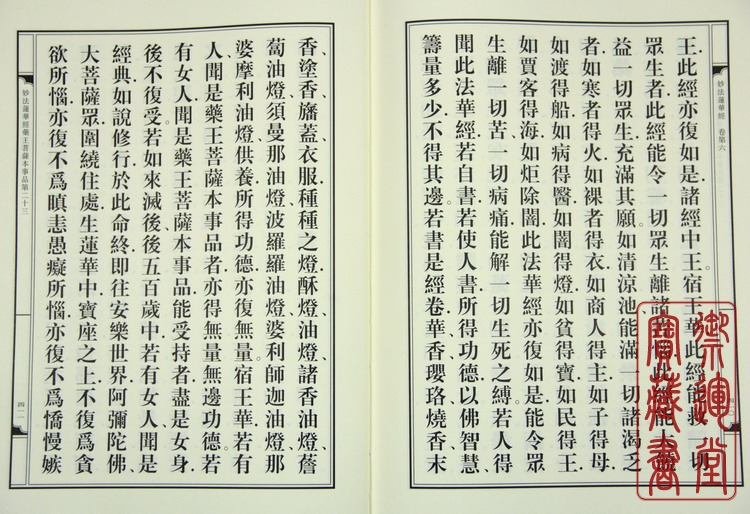 王此經亦復如是諸經中王。宿王華此經能救一切
眾生者此經能令一切眾生離諸苦惱此經能大饒
益一切眾生充滿其願。如清涼池能滿一切諸渴乏
者如寒者得火如裸者得衣如商人得主如子得母
如渡得船如病得醫如闇得燈如貧得寶如民得王
如賈客得海如炬除闇此法華經亦復如是能令眾
生離一切苦、一切病痛能解一切生死之縛。若人得
聞此法華經若自書若使人書所得功德以佛智慧
籌量多少不得其邊。若書是經卷華香、瓔珞、燒香、末
妙法蓮華經 卷第六
寶藏書
香、塗香、旛蓋、衣服、種種之燈酥燈、油燈、諸香油燈、薝
蔔油燈、須曼那油燈、波羅羅油燈、婆利師迦油燈、那
婆摩利油燈、供養所得功德亦復無量。宿王華若有
人聞是藥王菩薩本事品者亦得無量無邊功德。若
有女人聞是藥王菩薩本事品能受持者盡是女身
後不復受若如來滅後後五百歲中若有女人聞是
經典如說修行於此命終即往安樂世界阿彌陀佛、
大菩薩眾圍繞住處生蓮華中寶座之上不復為貪
欲所惱亦復不為瞋恚愚癡所惱亦復不為憍慢嫉
妙法蓮華經藥王菩薩本事品第二十三
四一一